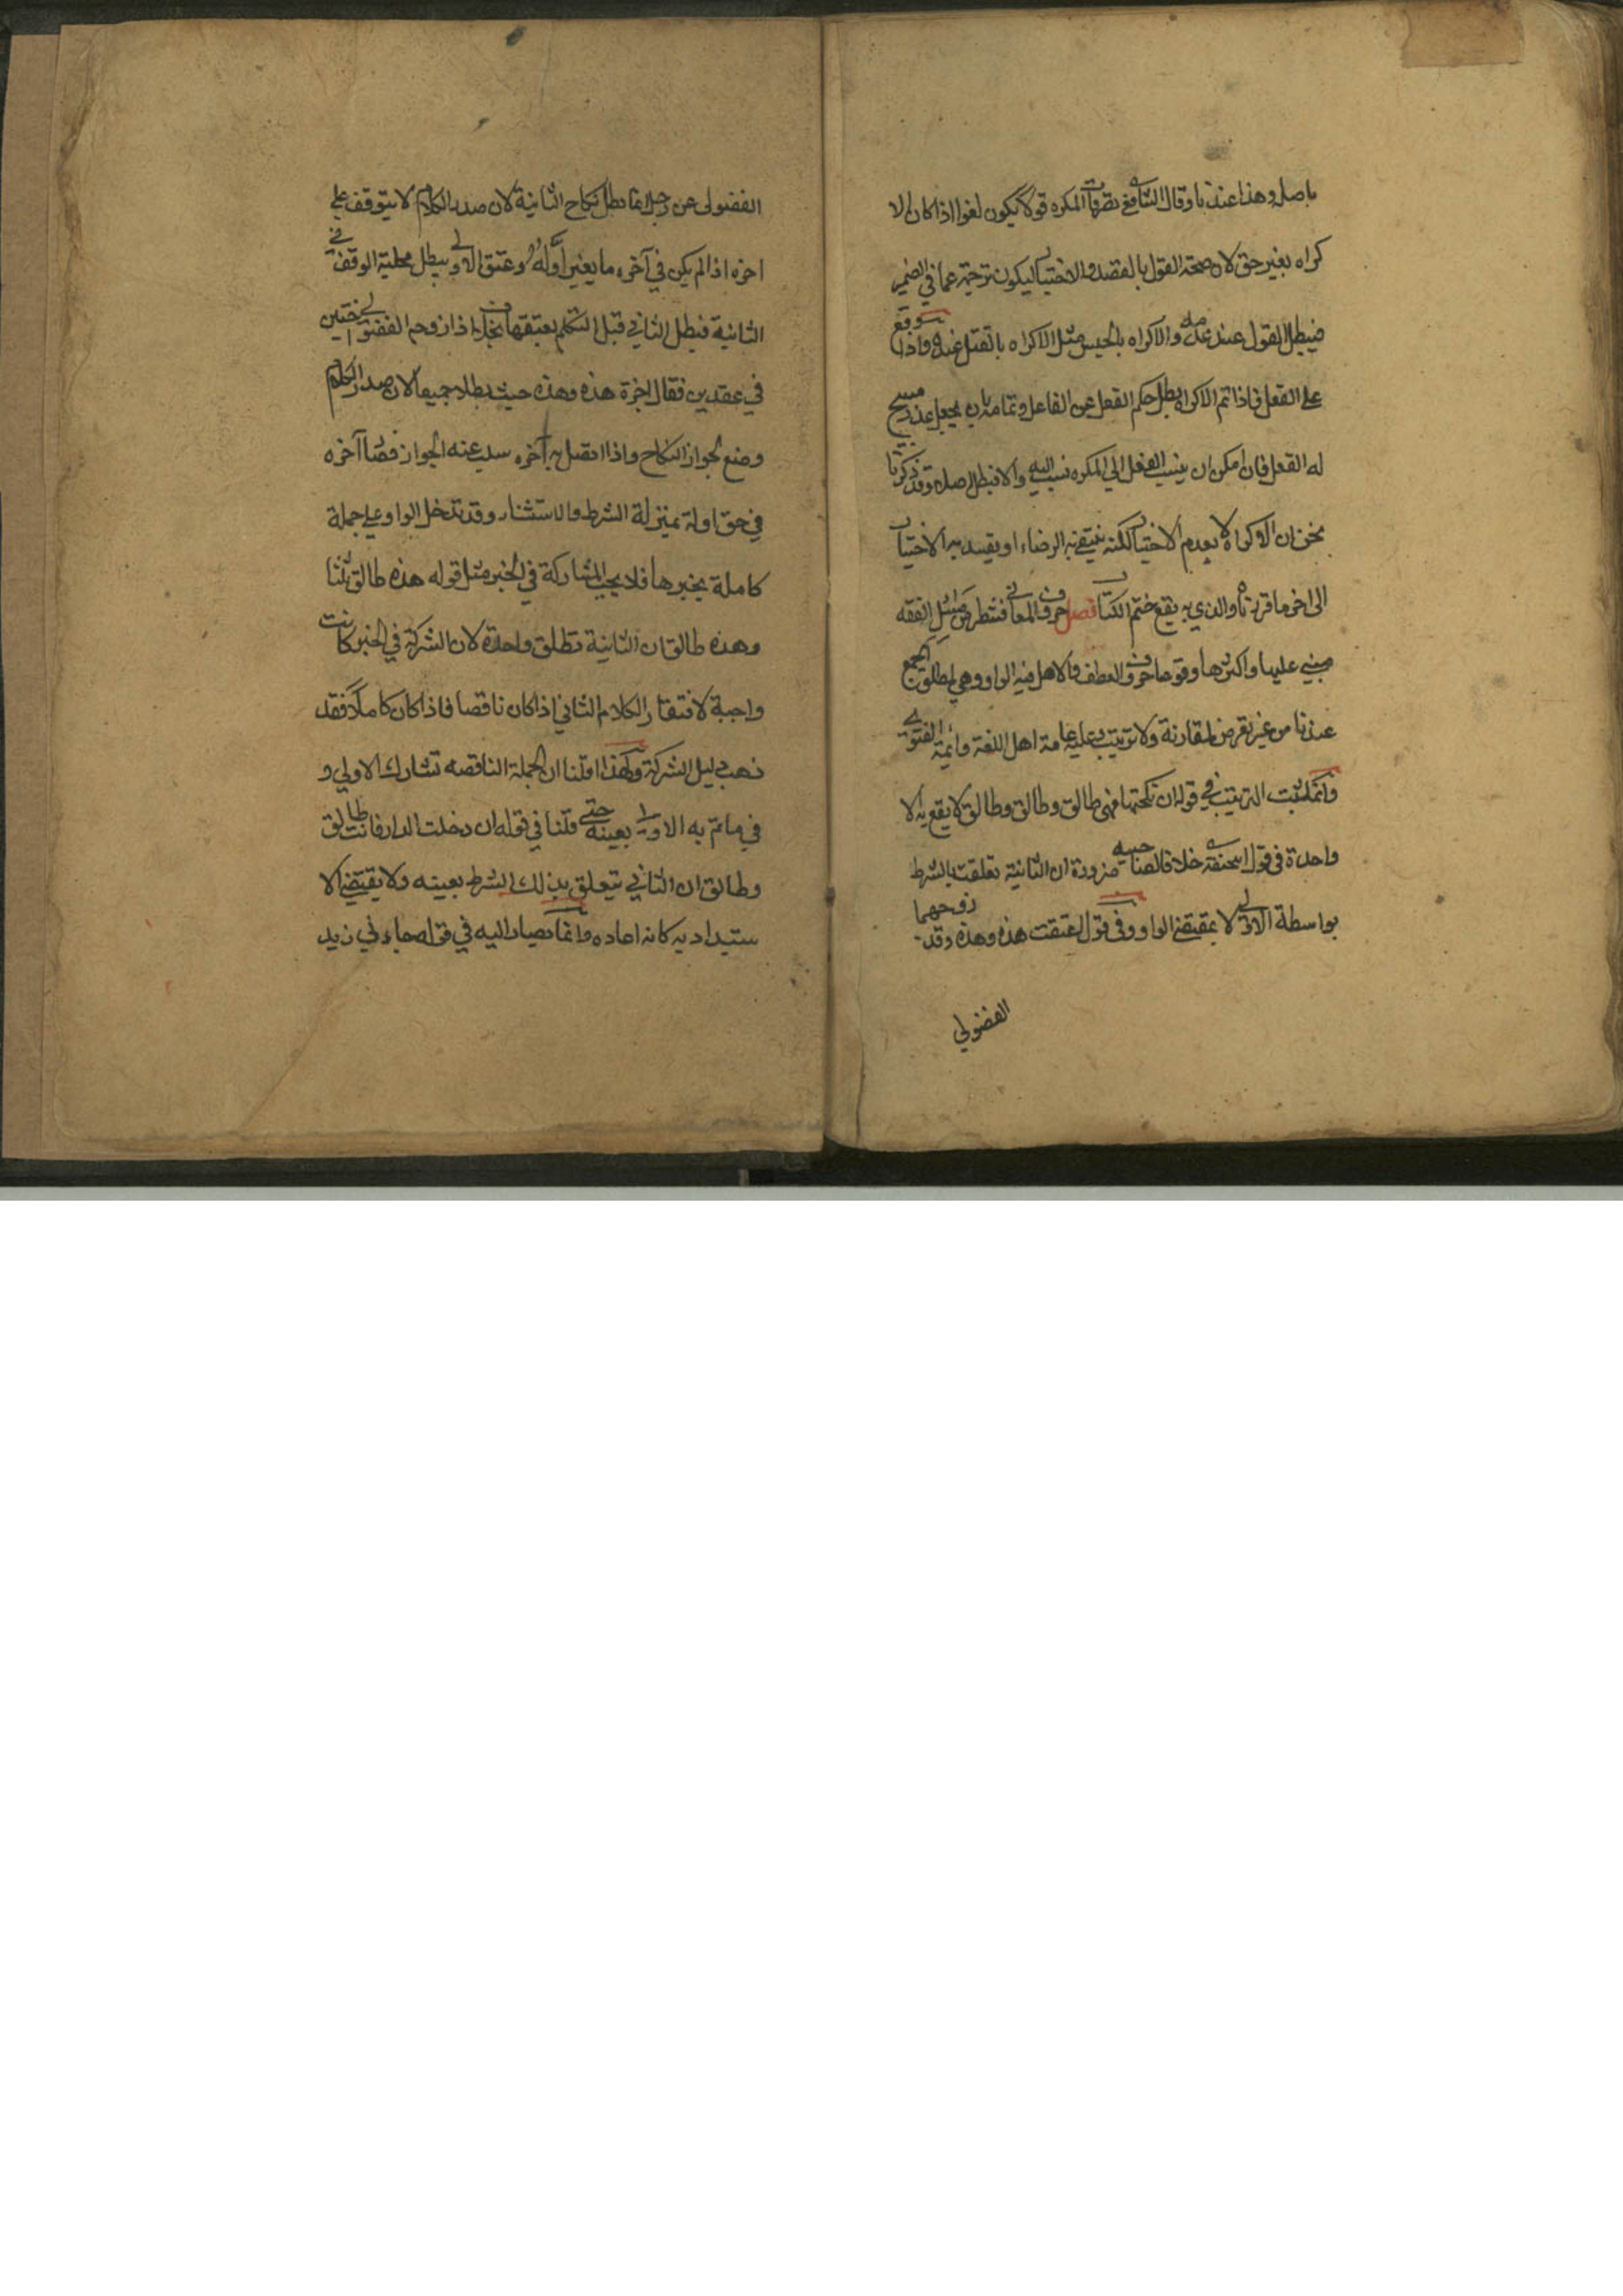 باصله وهذا عندنا وقال الشافعي تصرفات المكره قولا يكون لغوا اذا كان الا
كراه بغير حق لان صحة القول بالقصد والاختيار ليكون ترجمة عما في الضمير
فيبطل القول عند عدمه والاكراه بالحبس مثل الاكراه بالقتل عنده واذا وقع
على الفعل فاذا تم الاكراه بطل حكم الفعل عن الفاعل وتمامه بان يجعل عذرا يبيح
له الفعل فان امكن ان ينسب الفعل الى المكره نسب اليه والا فيبطل اصلا وقد ذكرنا
نحن ان الاكراه لا يعدم الاختيار لكنه ينتفي به الرضاء او يفسد به الاختيار
الى اخر ما قررناه والذي به يقع ختم الكتاب فصل حروف المعاني فشطر من مسائل الفقه
مبني عليها واكثرها وقوعا حروف العطف والاصل فيه الواو وهي لمطلق الجمع
عندنا من غير تعرض لمقارنة ولا ترتيب وعليه عامة اهل اللغة وائمة الفتوى
وانما يثبت الترتيب في قوله ان نكحتها فهي طالق وطالق وطالق لا يقع به الا
واحدة في قول ابي حنيفة خلافا لصاحبيه ضرورة ان الثانية تعلقت بالشرط
بواسطة الاولى لا بمقتضى الواو وفي قول اعتقت هذه وهذه وقد زوجهما
الفضولي
الفضولى عن رجل انما بطل نكاح الثانية لان صدر الكلام لا يتوقف على
اخره اذا لم يكن في آخره ما يغير اوله وعتق الاولى يبطل محلية الوقف في
الثانية فبطل الثاني قبل التكلم بعتقها بخلاف ما اذا زوجه الفضولي اختين
في عقدين فقال اجزت هذه وهذه حيث بطلا جميعا لان صدر الكلام
وضع لجواز النكاح واذا اتصل به آخره سلب عنه الجواز فصار آخره
في حق اوله بمنزلة الشرط والاستثناء وقد تدخل الواو على جملة
كاملة بخبرها فلا يجب المشاركة في الخبر مثل قوله هذه طالق ثلثا
وهذه طالق ان الثانية تطلق واحدة لان الشركة في الخبر كانت
واجبة لافتقار الكلام الثاني اذا كان ناقصا فاذا كان كاملا فقد
ذهب دليل الشركة ولهذا قلنا ان الجملة الناقصه تشارك الاولى و
في ما تم به الاولى بعينه حتى قلنا في قوله ان دخلت الدار فانت طالق
وطالق ان الثاني يتعلق بذلك الشرط بعينه ولا يقتضي الا
ستبداد به كانه اعاده وانما يصار اليه في قوله جاءني زيد